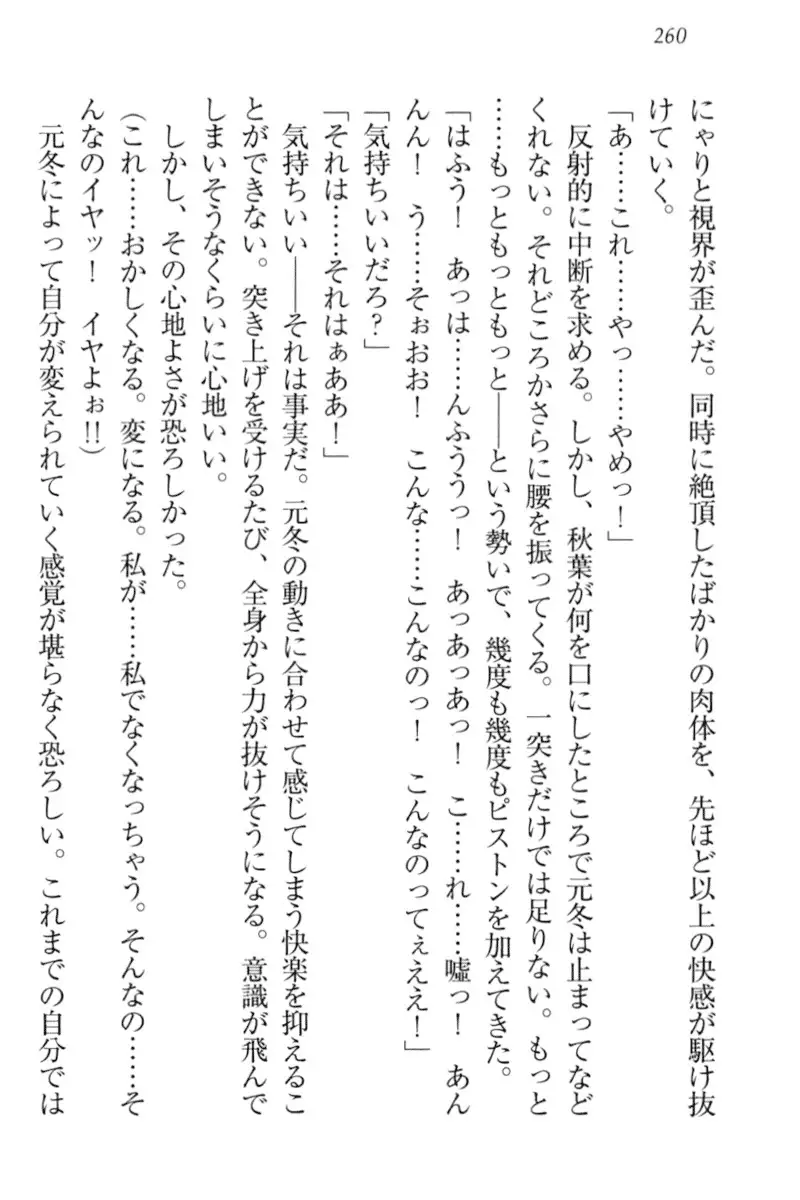 260
にゃりと視界が歪んだ。同時に絶頂したばかりの肉体を、先ほど以上の快感が駆け抜
けていく。
「あ……これ……やっ……やめっ!」
反射的に中断を求める。しかし、秋葉が何を口にしたところで元冬は止まってなど
くれない。それどころかさらに腰を振ってくる。一突きだけでは足りない。もっと
……もっともっともっと――という勢いで、幾度も幾度もピストンを加えてきた。
「はふう! あっは……んふううっ! あっあっあっ! こ……れ……嘘っ! あん
んん! う……そぉおお! こんな……こんなのっ! こんなのってぇええ!」
「気持ちいいだろ?」
「それは……それはぁああ!」
気持ちいい――それは事実だ。元冬の動きに合わせて感じてしまう快楽を抑えるこ
とができない。突き上げを受けるたび、全身から力が抜けそうになる。意識が飛んで
しまいそうなくらいに心地いい。
しかし、その心地よさが恐ろしかった。
(これ……おかしくなる。変になる。私が……私でなくなっちゃう。そんなの……そ
んなのイヤッ! イヤよぉ!!)
元冬によって自分が変えられていく感覚が堪らなく恐ろしい。これまでの自分では